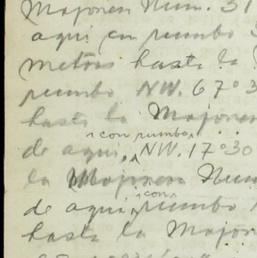 Mojonera Num. 31
aquí con rumbo
metros hasta la
rumbo NW. 67°3
hasta la Mojonera
con rumbo
de aquí NW. 17°30
la Mojonera Num
con
de aquí rumbo
hasta la Mojon